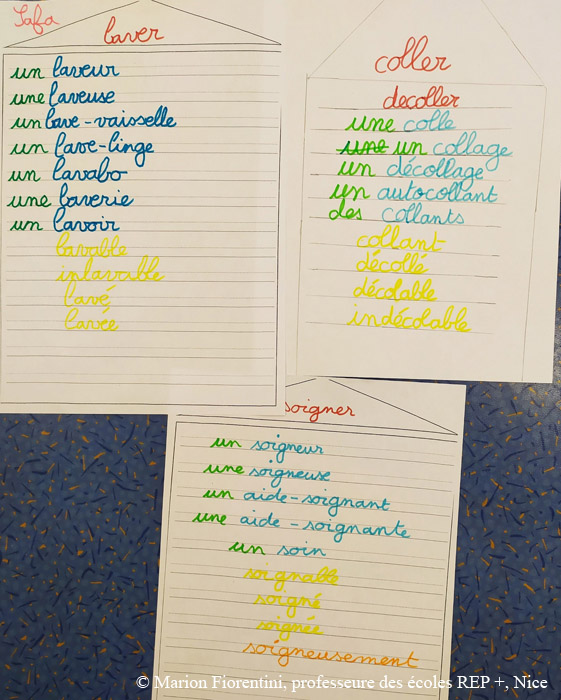 Safa
laver
un laveur
une laveuse
un lave-vaisselle
un lave-linge
un lavabo
une laverie
un lavoir
lavable
inlavable
lavé
lavée
coller
decoller
une colle
une un collage
un décollage
un autocollant
des collants
collant
décollé
décolable
indécolable
soigner
un soigneur
une soigneuse
un aide-soignant
une aide-soignante
un soin
soignable
soigné
soignée
soigneusement
© Marion Fiorentini, professeure des écoles REP +, Nice